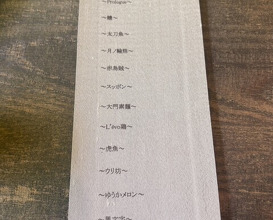 ～Prologue～
～太刀魚～
～月ノ輪熊～
～スッポン～
～大門素麺～
～L'évo鶏～
～虎魚～
～ウリ坊～
～ゆうかメロン～